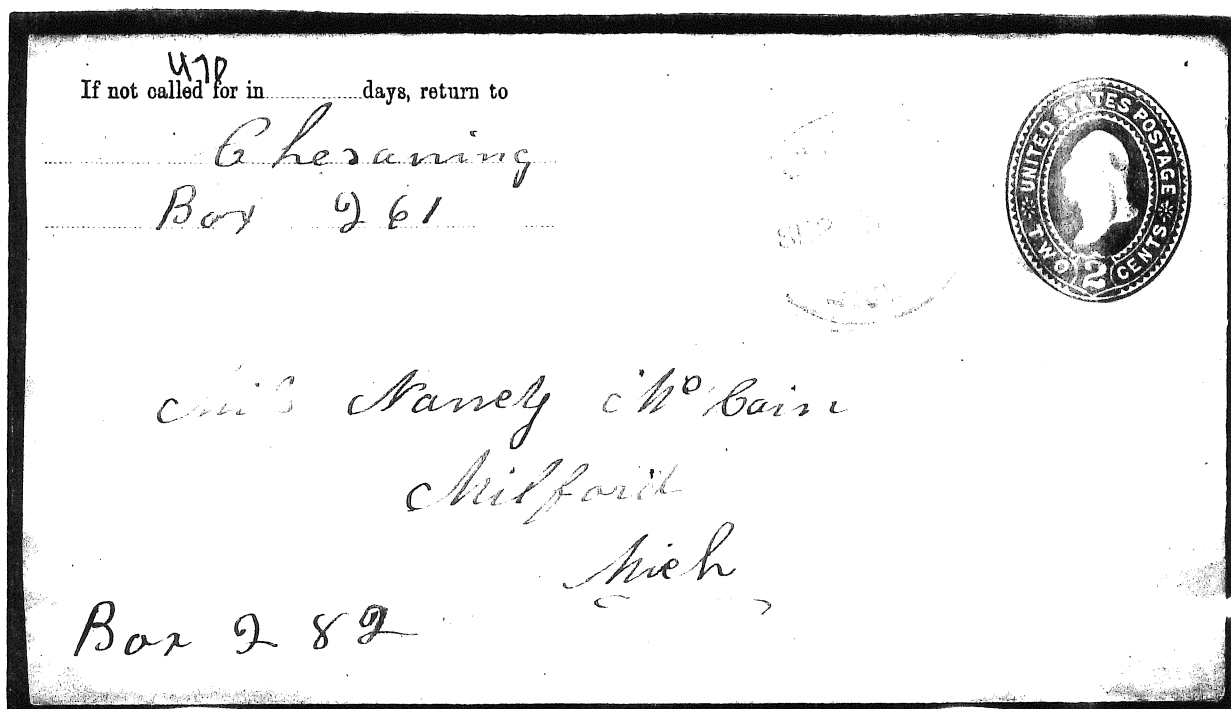 478
If not called for in ........ days, return to
Chesaning
Box 261
UNITED STATES POSTAGE
TWO 2 CENTS
SEP
Nancy Mc Cain
Milford
Mich
Box 282